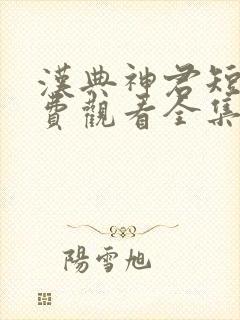 漢典神君短
費觀看全集
陽雪旭